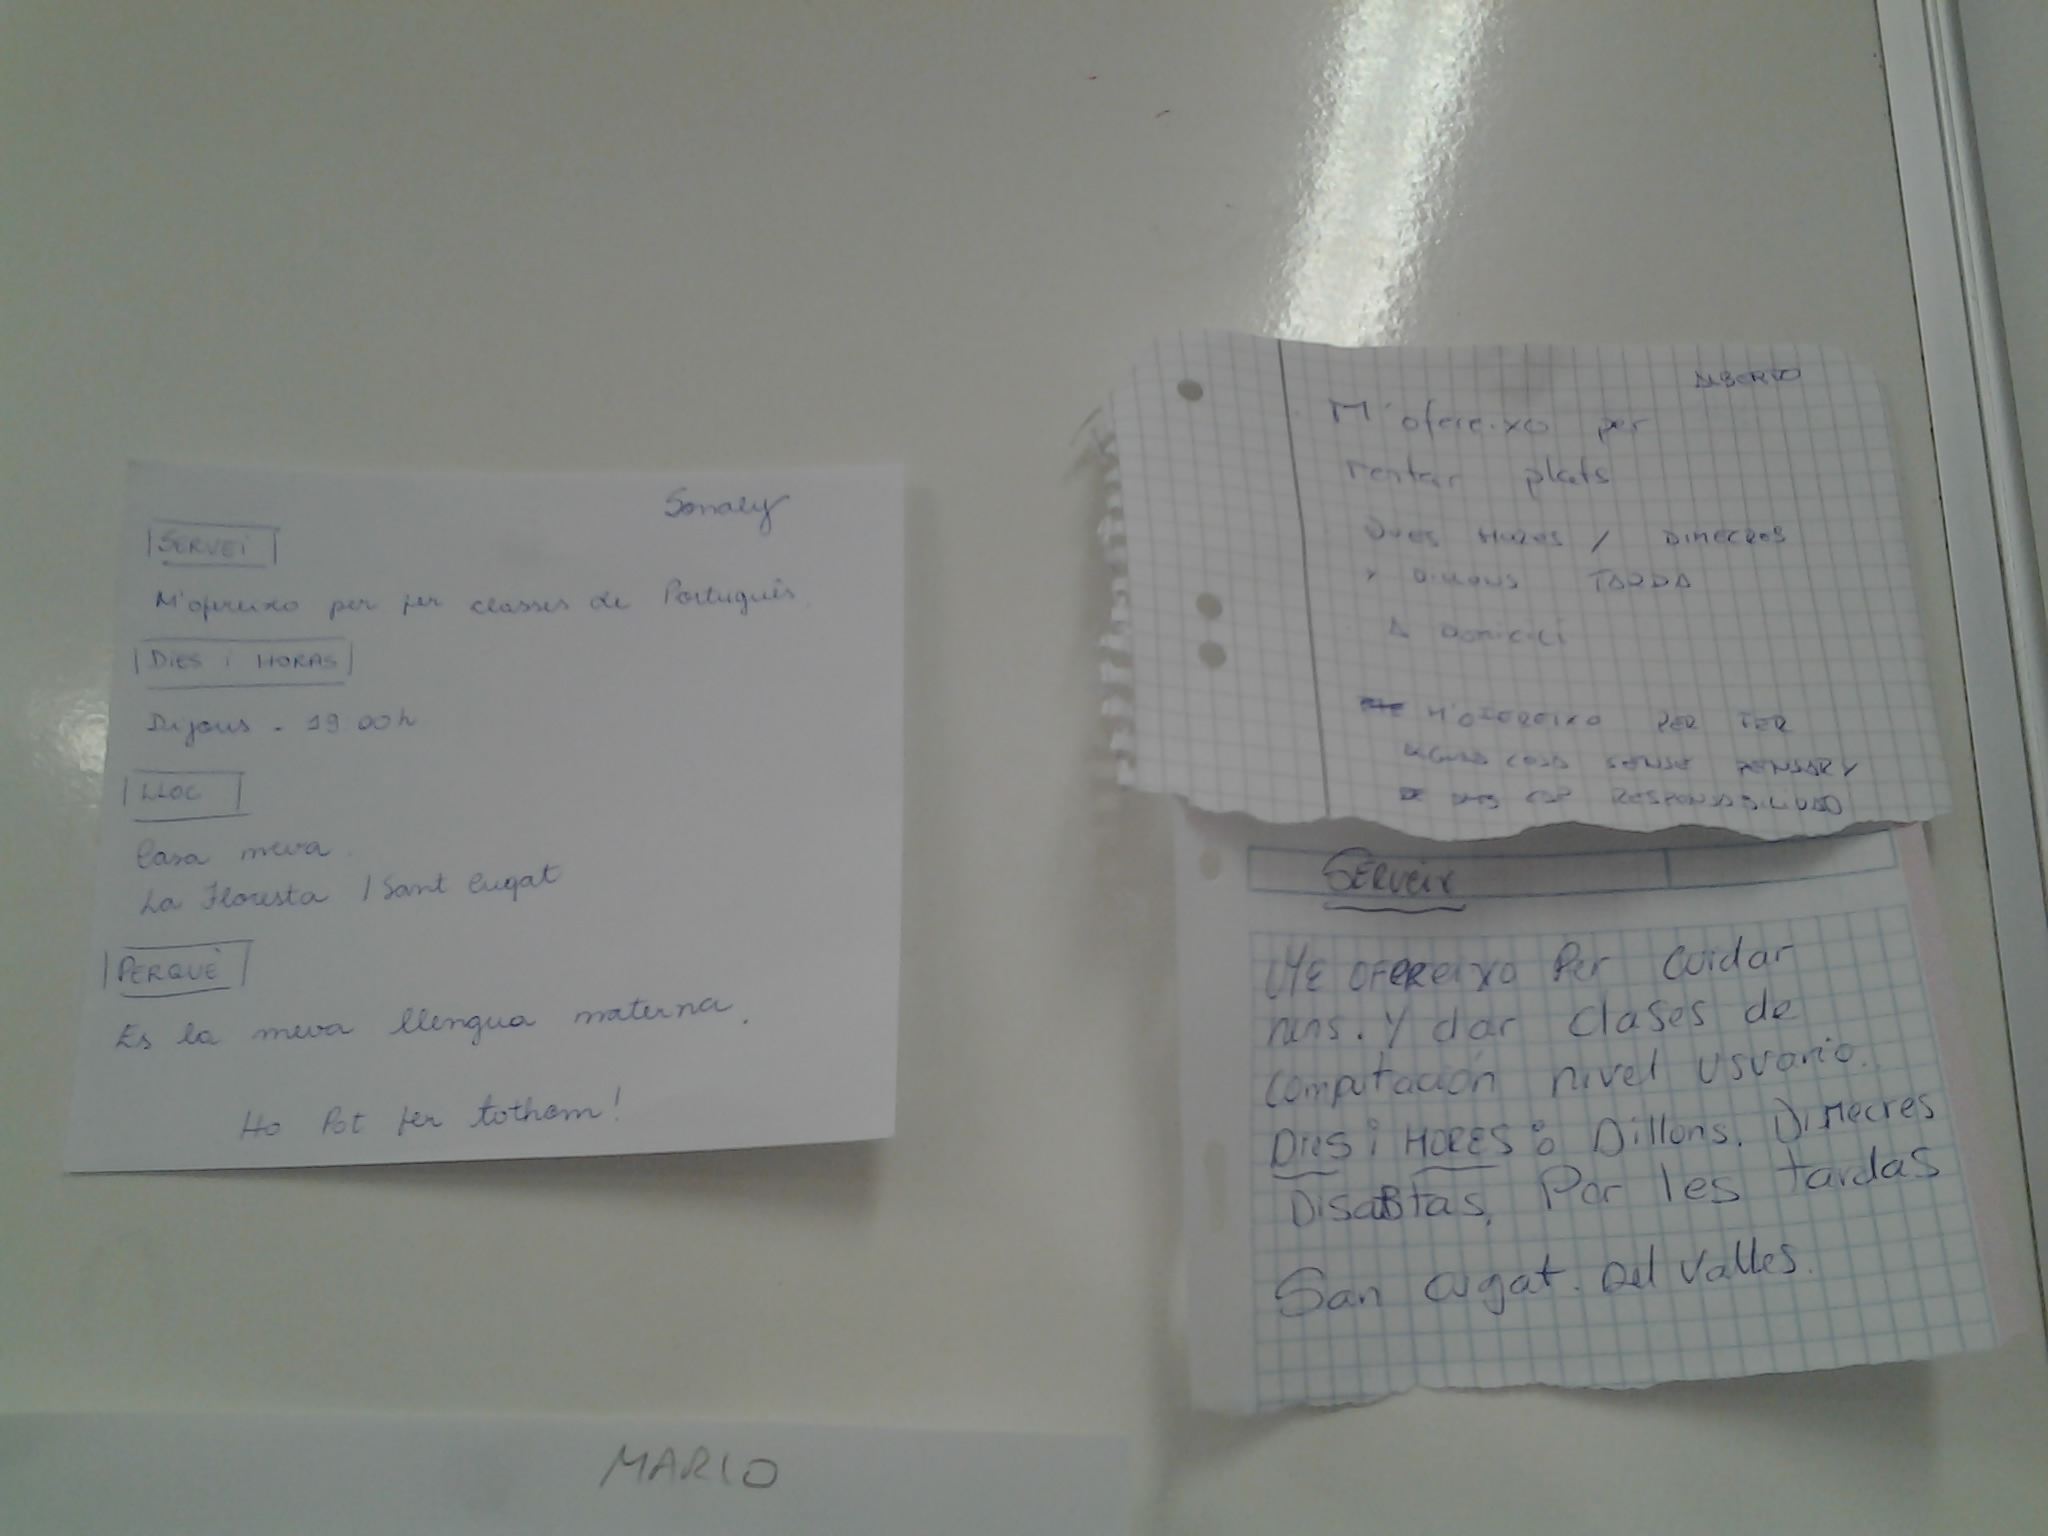 Sonaly
SERVEI
M'ofereixo per fer classes de Portuguès.
DIES i HORAS
Dijous - 19 00h
LLOC
Casa meva.
La Floresta / Sant Cugat
PERQUÈ
Es la meva llengua materna.
Ho Pot fer tothom!
MARIO
ALBERTO
M'ofereixo per
rentar plats
DUES HORES / DIMECRES
Y DILLUNS TARDA
A DOMICILI
M'OFEREIXO PER FER
COSA SENSE PENSAR Y
CAP RESPONSABILIDAD
SERVEIX
ME OFEREIXO Per cuidar
nens. Y dar Clases de
Computación nivel usuario.
Dies i HORES: Dillons. DiMecres
DisaBtas, Por les tardas
San cugat. Del Valles.